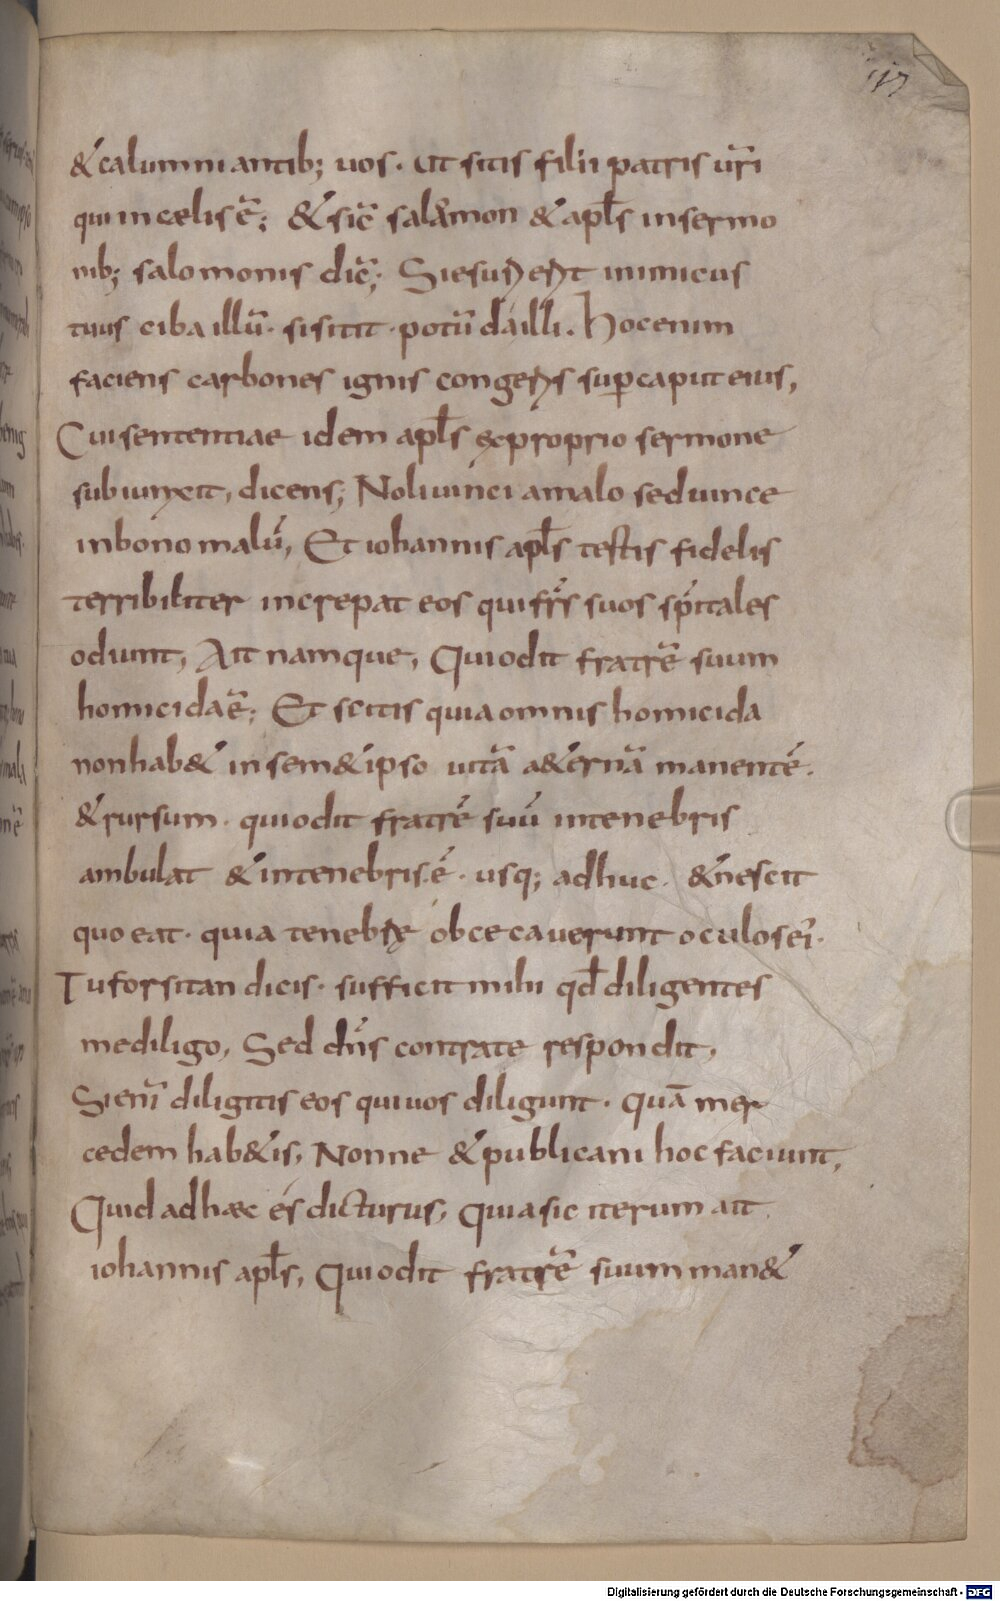 117
& calumniantib; uos. ut sitis filii patris ur̃i
qui in cęlis ē; & sic̃ salamon & apl̃s in sermo
nib; salomonis dic̃; Si esurierit inimicus
tuus ciba illũ. si sitit. potũ da illi. Hoc enim
faciens carbones ignis congeris sup̱ caput eius,
Cui sententiae idem apl̃s ex proprio sermone
subiunxit, dicens; Noli uinci a malo sed uince
in bono malũ, Et iohannis apl̃s testis fidelis
terribiliter increpat eos qui fr̃s suos sp̃itales
odiunt, Ait namque, Qui odit fratrẽ suum
homicida ẽ; Et scitis quia omnis homicida
non hab& in sem&ipso uitã a&ernã manentẽ.
& rursum. qui odit fratrẽ suũ in tenebris
ambulat & in tenebris. ẽ. usq; adhuc. & nescit
quo eat. quia tenebrę obcecauerunt oculos ei̾.
Tu forsitan dicis. sufficit mihi qd̃ diligentes
me diligo, Sed dñs contra te respondit,
Si eni̾ diligitis eos qui uos diligunt. quā mer
cedem hab&is, Nonne & publicani hoc faciunt,
Quid ad haec és dicturus, Quia sic iterum ait
iohannis apl̃s, Qui odit fratrẽ suum man&
Digitalisierung gefördert durch die Deutsche Forschungsgemeinschaft - DFG